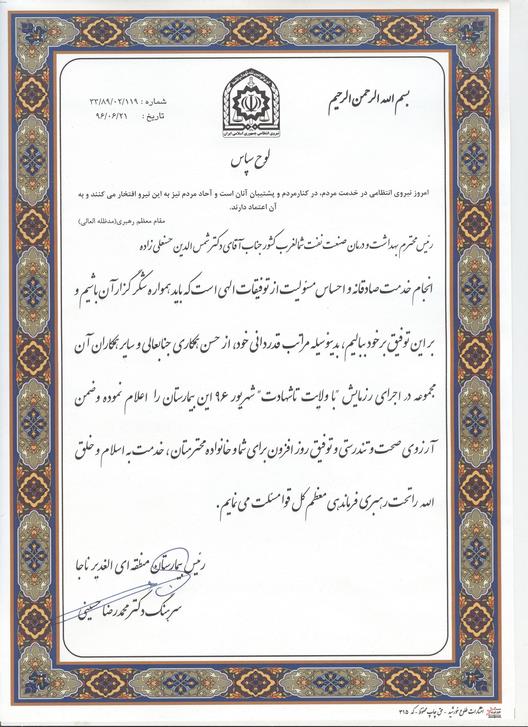 بسم الله الرحمن الرحیم
شماره : ۳۳/۸۹/۰۲/۱۱۹
تاریخ : ۹۶/۰۶/۲۱
نیروی انتظامی جمهوری اسلامی ایران
لوح سپاس
امروز نیروی انتظامی در خدمت مردم، در کنار مردم و پشتیبان آنان است و آحاد مردم نیز به این نیرو افتخار می کنند و به
آن اعتماد دارند.
مقام معظم رهبری(مدظله العالی)
رئیس محترم بهداشت و درمان صنعت نفت شمالغرب کشور جناب آقای دکتر شمس الدین حسنعلی زاده
انجام خدمت صادقانه و احساس مسئولیت از توفیقات الهی است که باید همواره شکرگزار آن باشیم و
بر این توفیق بر خود ببالیم، بدینوسیله مراتب قدردانی خود، از حسن همکاری جنابعالی و سایر همکاران آن
مجموعه در اجرای رزمایش "با ولایت تا شهادت" شهریور ۹۶ این بیمارستان را اعلام نموده و ضمن
آرزوی صحت و تندرستی و توفیق روز افزون برای شما و خانواده محترمتان، خدمت به اسلام و خلق
الله را تحت رهبری فرماندهی معظم کل قوا مسئلت می نمایم.
رئیس بیمارستان منطقه ای الغدیر ناجا
سرهنگ دکتر محمدرضا حسینی
انتشارات طلوع خورشید - حق چاپ محفوظ - کد ۳۱۵